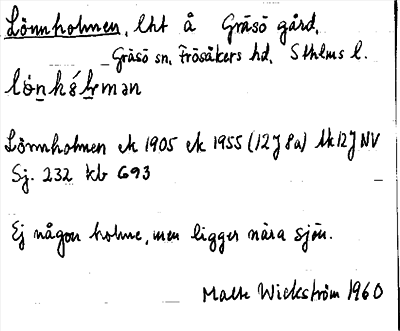 Lönnholmen, lht å Gräsö gård,
Gräsö sn, Frösåkers hd, Sthlms l.
Lönnholmen ek 1905 ek 1955 (12J 8a) tk 12J NV
Sj. 232 kb G93
Ej någon holme, men ligger nära sjön.
Malte Wickström 1960